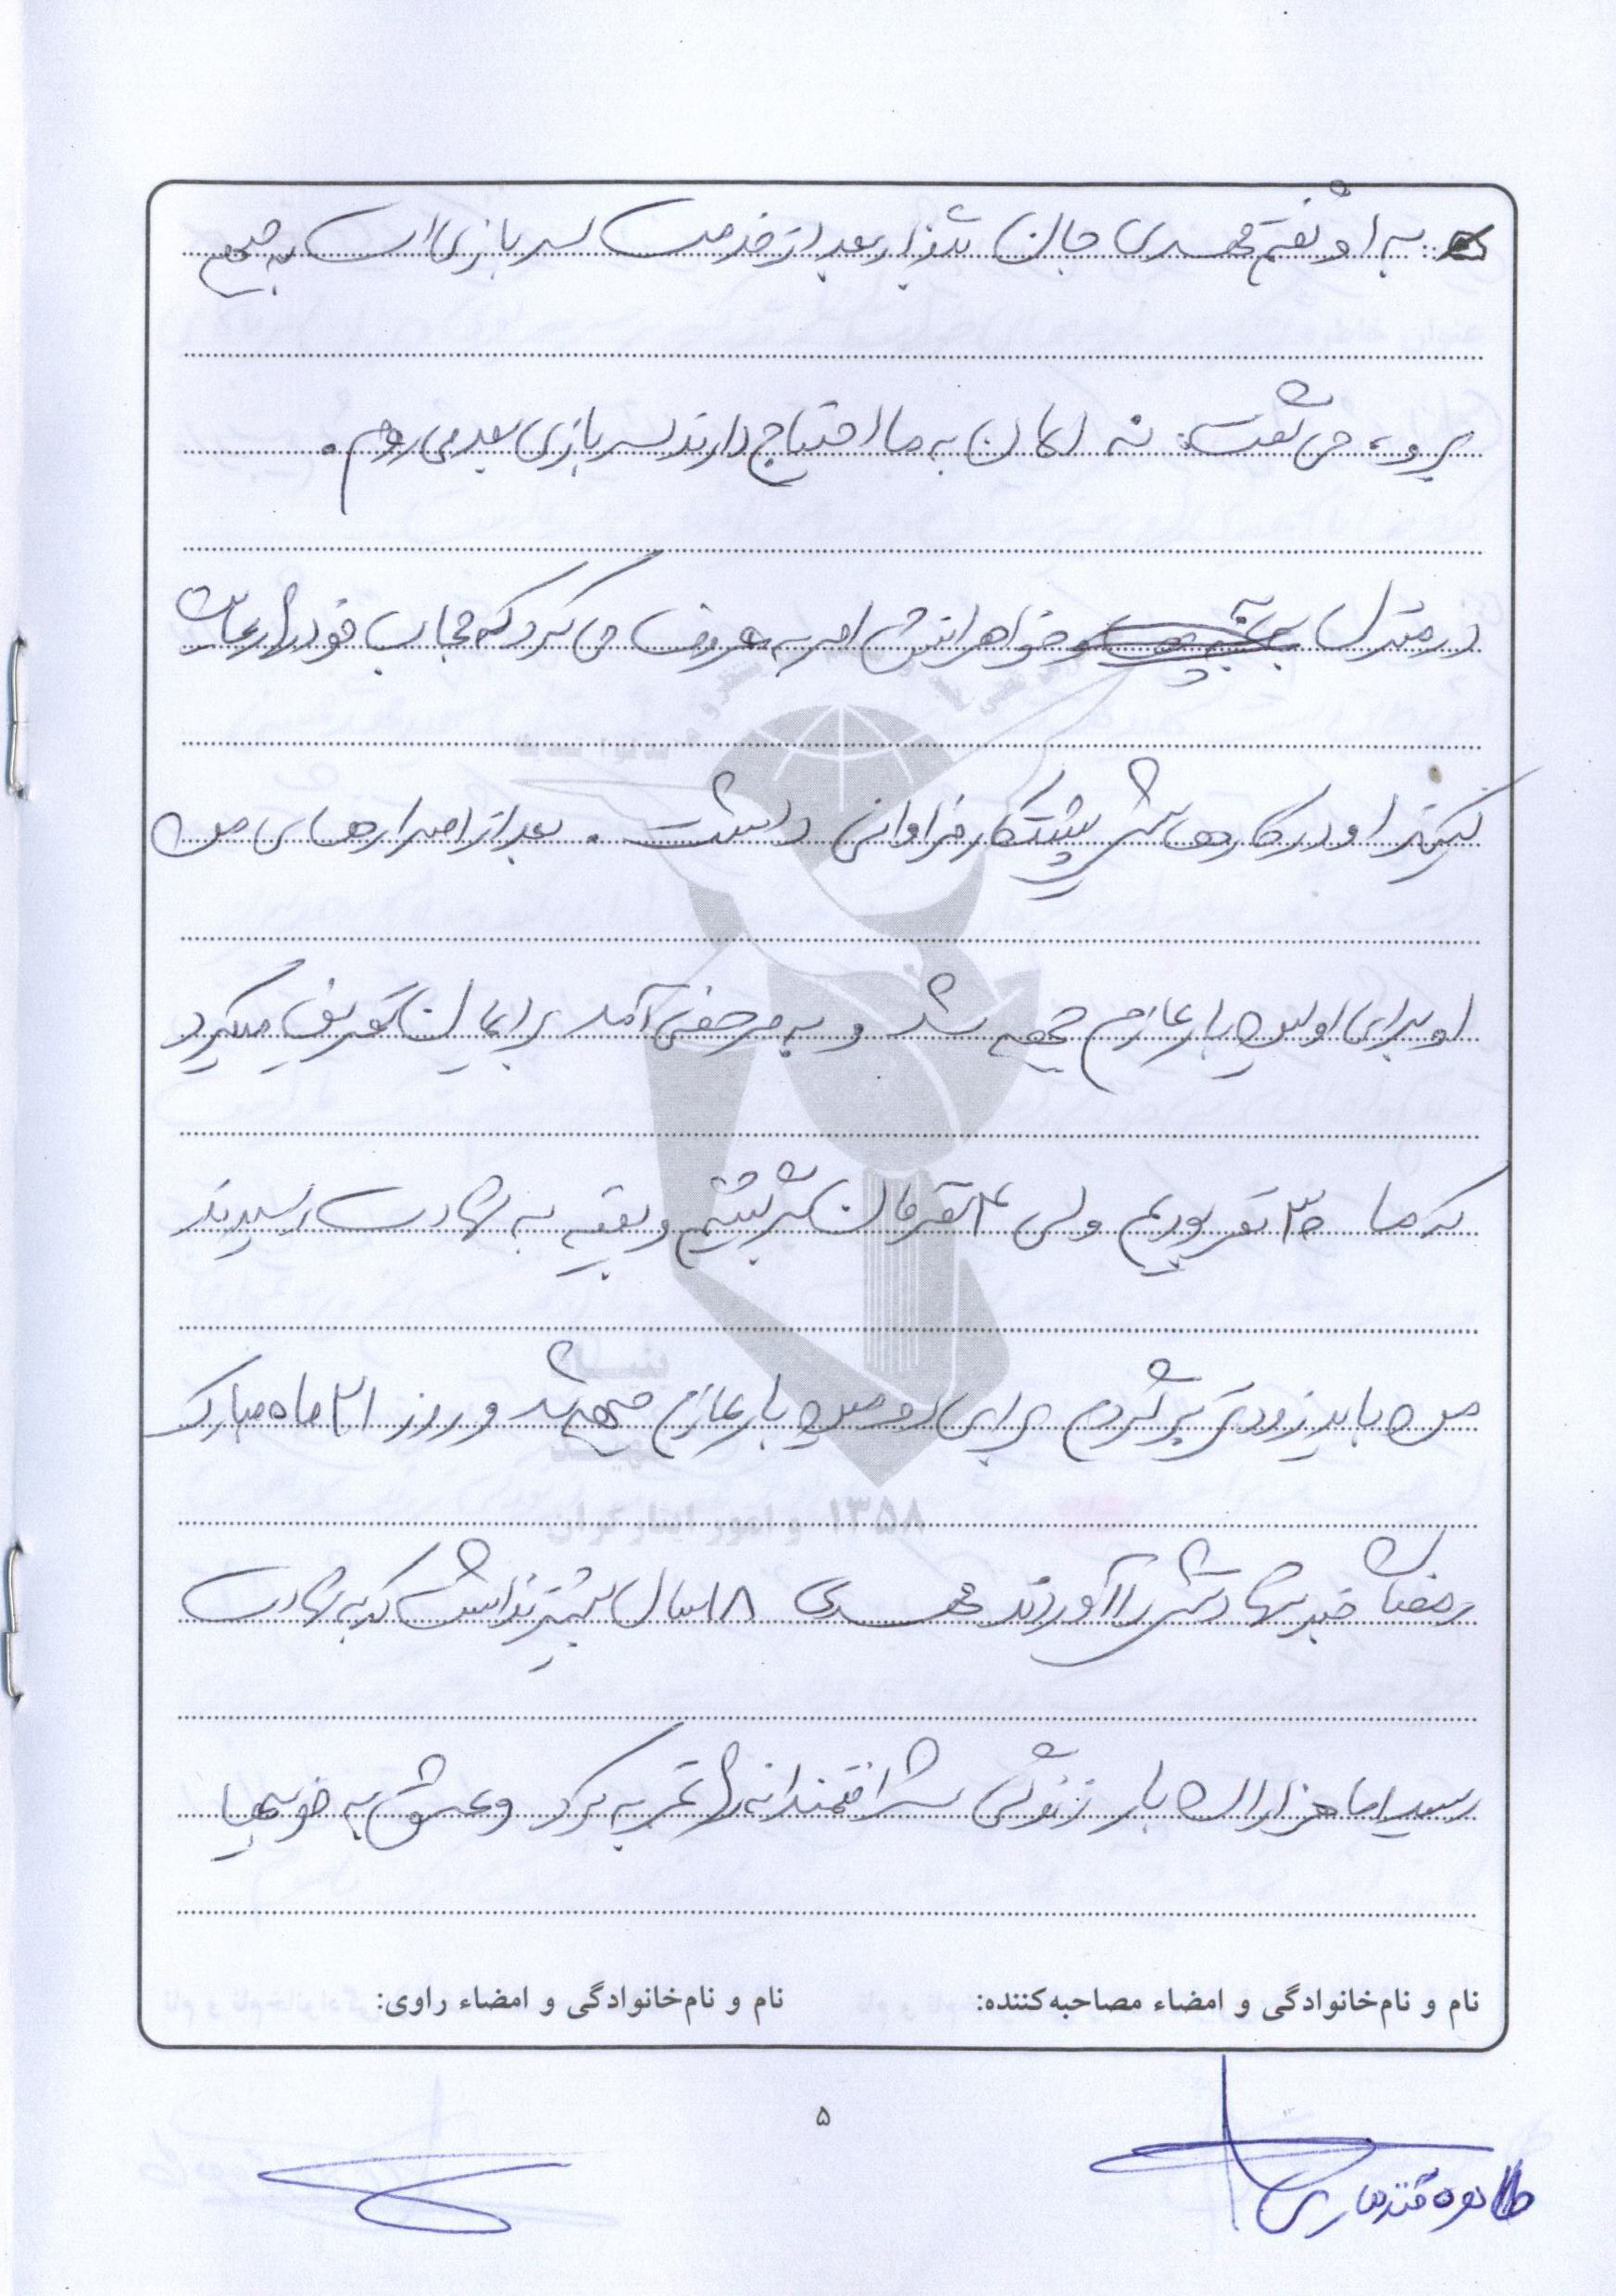 به او گفتم مهدی جان بگذار بعد از خدمت سربازی ات به جبهه
برو، می گفت: نه الان به ما احتیاج دارند سربازی بعد می روم.
در منزل خواهرانش امر به معروف می کرد که حجاب خود را رعایت
کنید او در کارهایش پشتکار فراوانی داشت. بعد از اصرارهای من
او برای اولین بار عازم جبهه شد و به مرخصی آمد برایمان تعریف میکرد
که ما ۳۰ نفر بودیم ولی ۴ نفرمان برگشتیم و بقیه به شهادت رسیدند
من باید زودتر برگردم برای دومین بار عازم جبهه شد و روز ۲۱ ماه مبارک
رمضان خبر شهادتش را آوردند مهدی ۱۸ سال بیشتر نداشت که به شهادت
رسید اما هزاران بار زندگی شرافتمندانه را تجربه کرد و عشق به خوبیها
نام و نام‌خانوادگی و امضاء مصاحبه‌کننده: نام و نام‌خانوادگی و امضاء راوی:
۵
طاهره قندهاری
۱۳۵۸